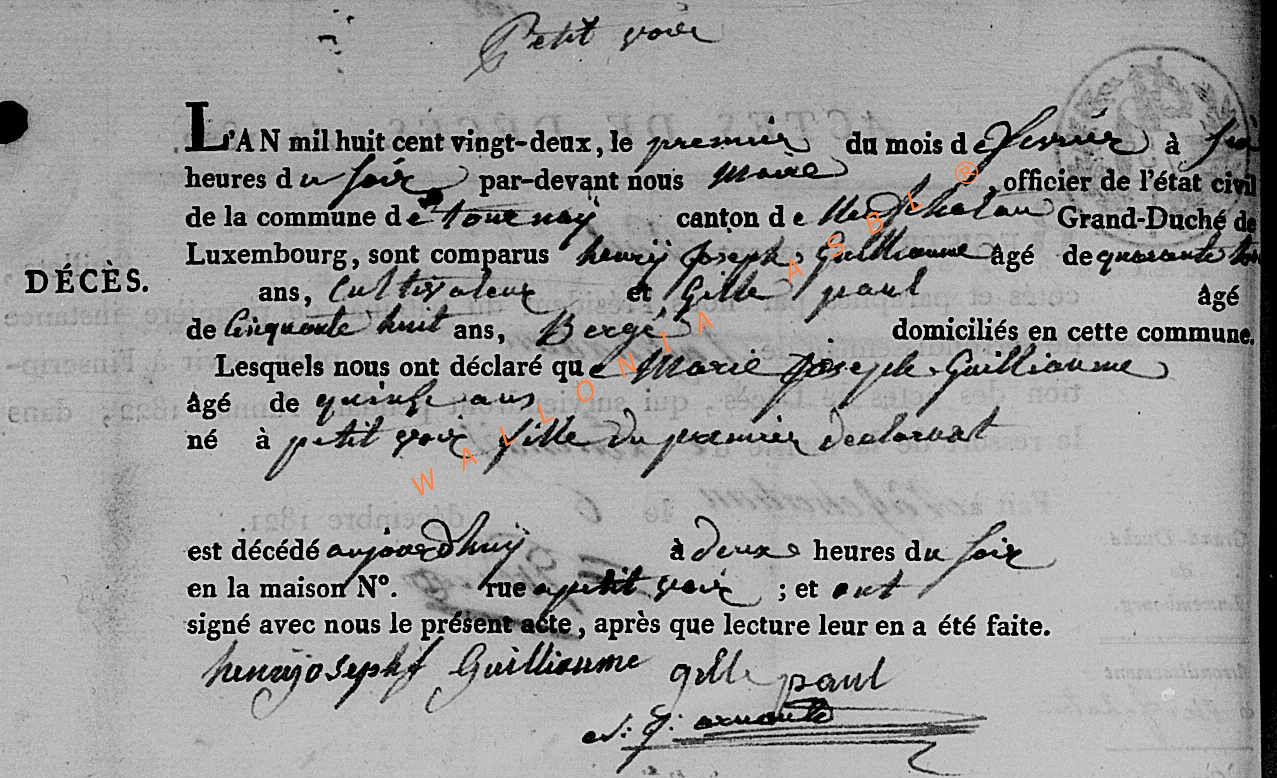 Petit voir
L'AN mil huit cent vingt-deux, le premier du mois de fevrier à
heures du soir par-devant nous Maire , officier de l'état civil
de la commune de tournay canton de Grand-Duché de
Luxembourg, sont comparus henry Joseph Guilliaume âgé de quarante
DÉCÈS.
ans, Cultivateur et Gille paul âgé
de Cinquante huit ans, Bergé domiciliés en cette commune.
Lesquels nous ont déclaré que Marie Joseph Guilliaume
âgé de quinse ans
né à petit voir fille du premier declarant
est décédé aujourdhuy à deux heures du soir
en la maison N°. rue a petit voir ; et ont
signé avec nous le présent acte, après que lecture leur en a été faite.
henry joseph Guilliaume gille paul
WALLONIA ASBL ®